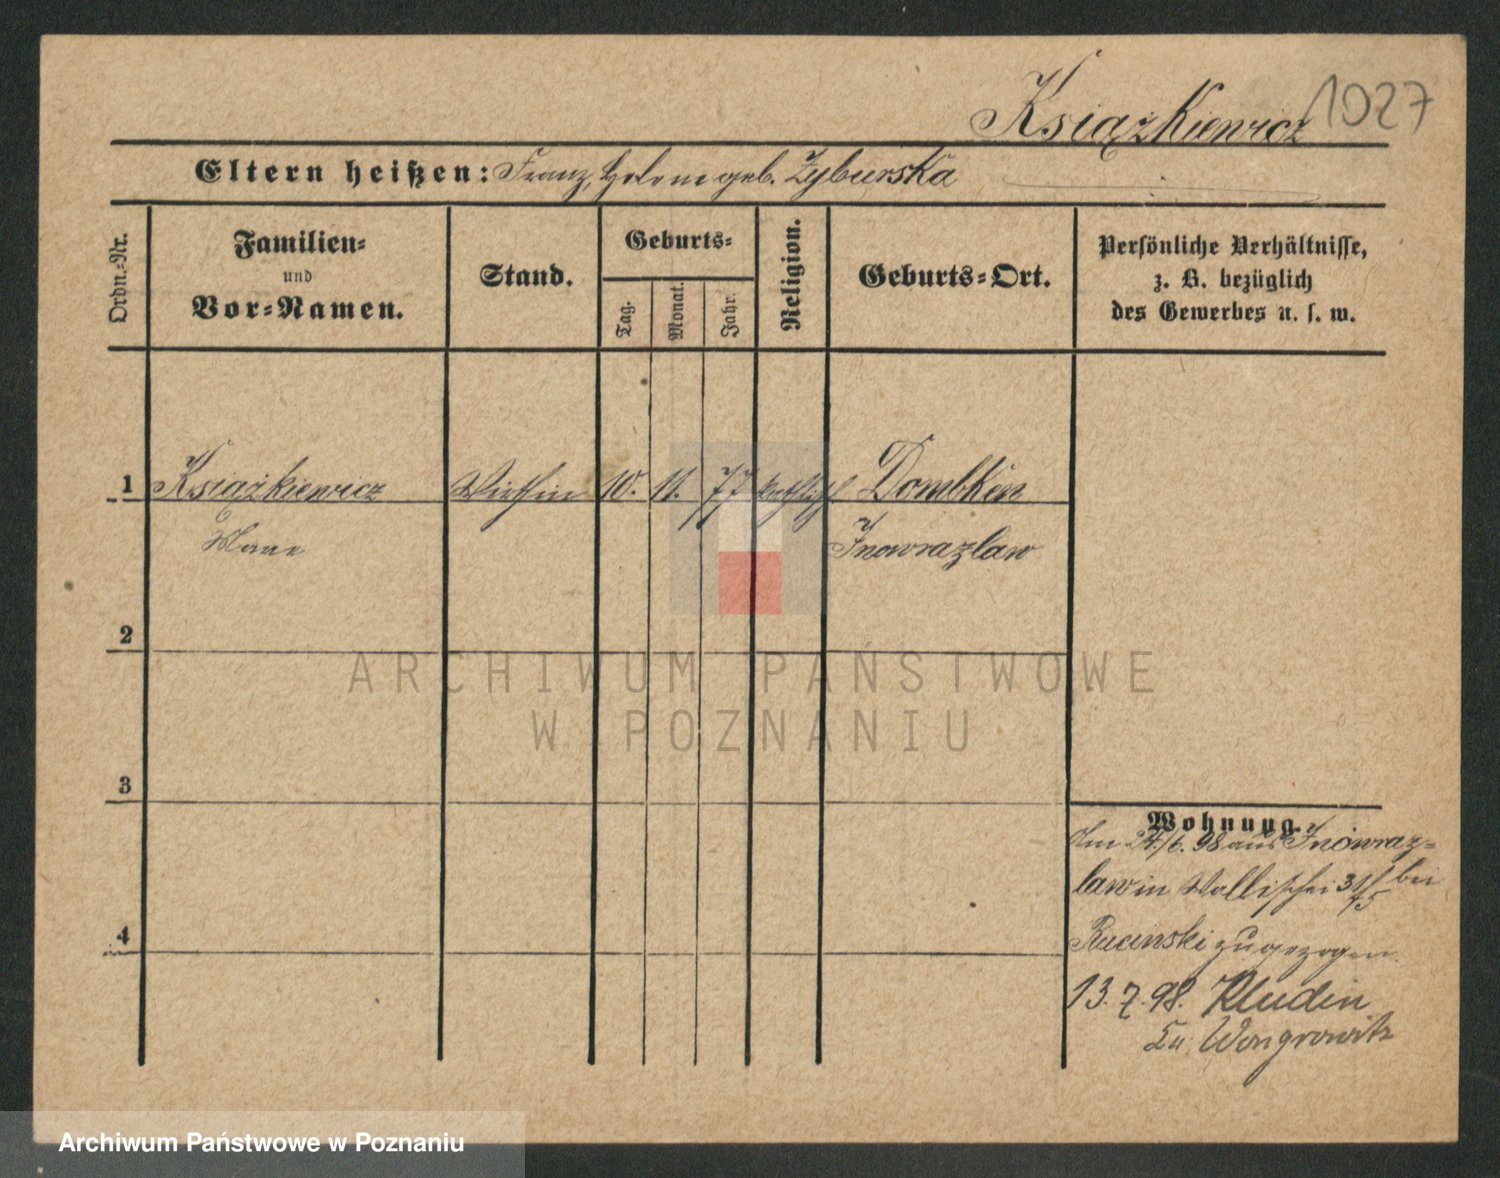 Książkiewicz 1027
Eltern heißen: Franz, Helene geb. Zyburska
Ordn.=Nr.
Familien=
und
Vor=Namen.
Stand.
Geburts=
Tag.
Monat.
Jahr.
Religion.
Geburts=Ort.
Persönliche Verhältnisse,
z. B. bezüglich
des Gewerbes u. s. w.
1 Książkiewicz Wirthin 10. 11. 77 kathlich Dombken
Inowrazlaw
2
3
4
Wohnung.
Am 24/6. 98 aus Inowraz=
law in Wallischei 31/ bei
Rucinski zugezogen.
13. 7. 98. Kludin
Kr. Wongrowitz
ARCHIWUM PAŃSTWOWE
W POZNANIU
Archiwum Państwowe w Poznaniu